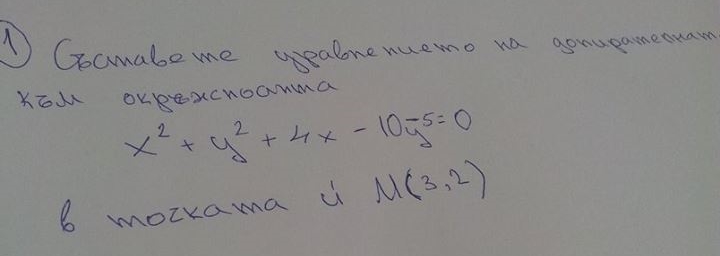 1) Съставете уравнението на допирателнат
към окръжността
x² + y² + 4x - 10y - 5 = 0
в точката ѝ M(3,2)